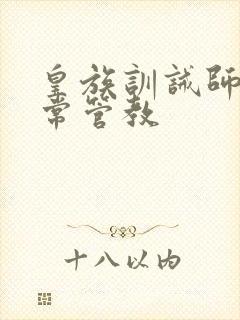 皇族訓誡師
常管教
十八以内